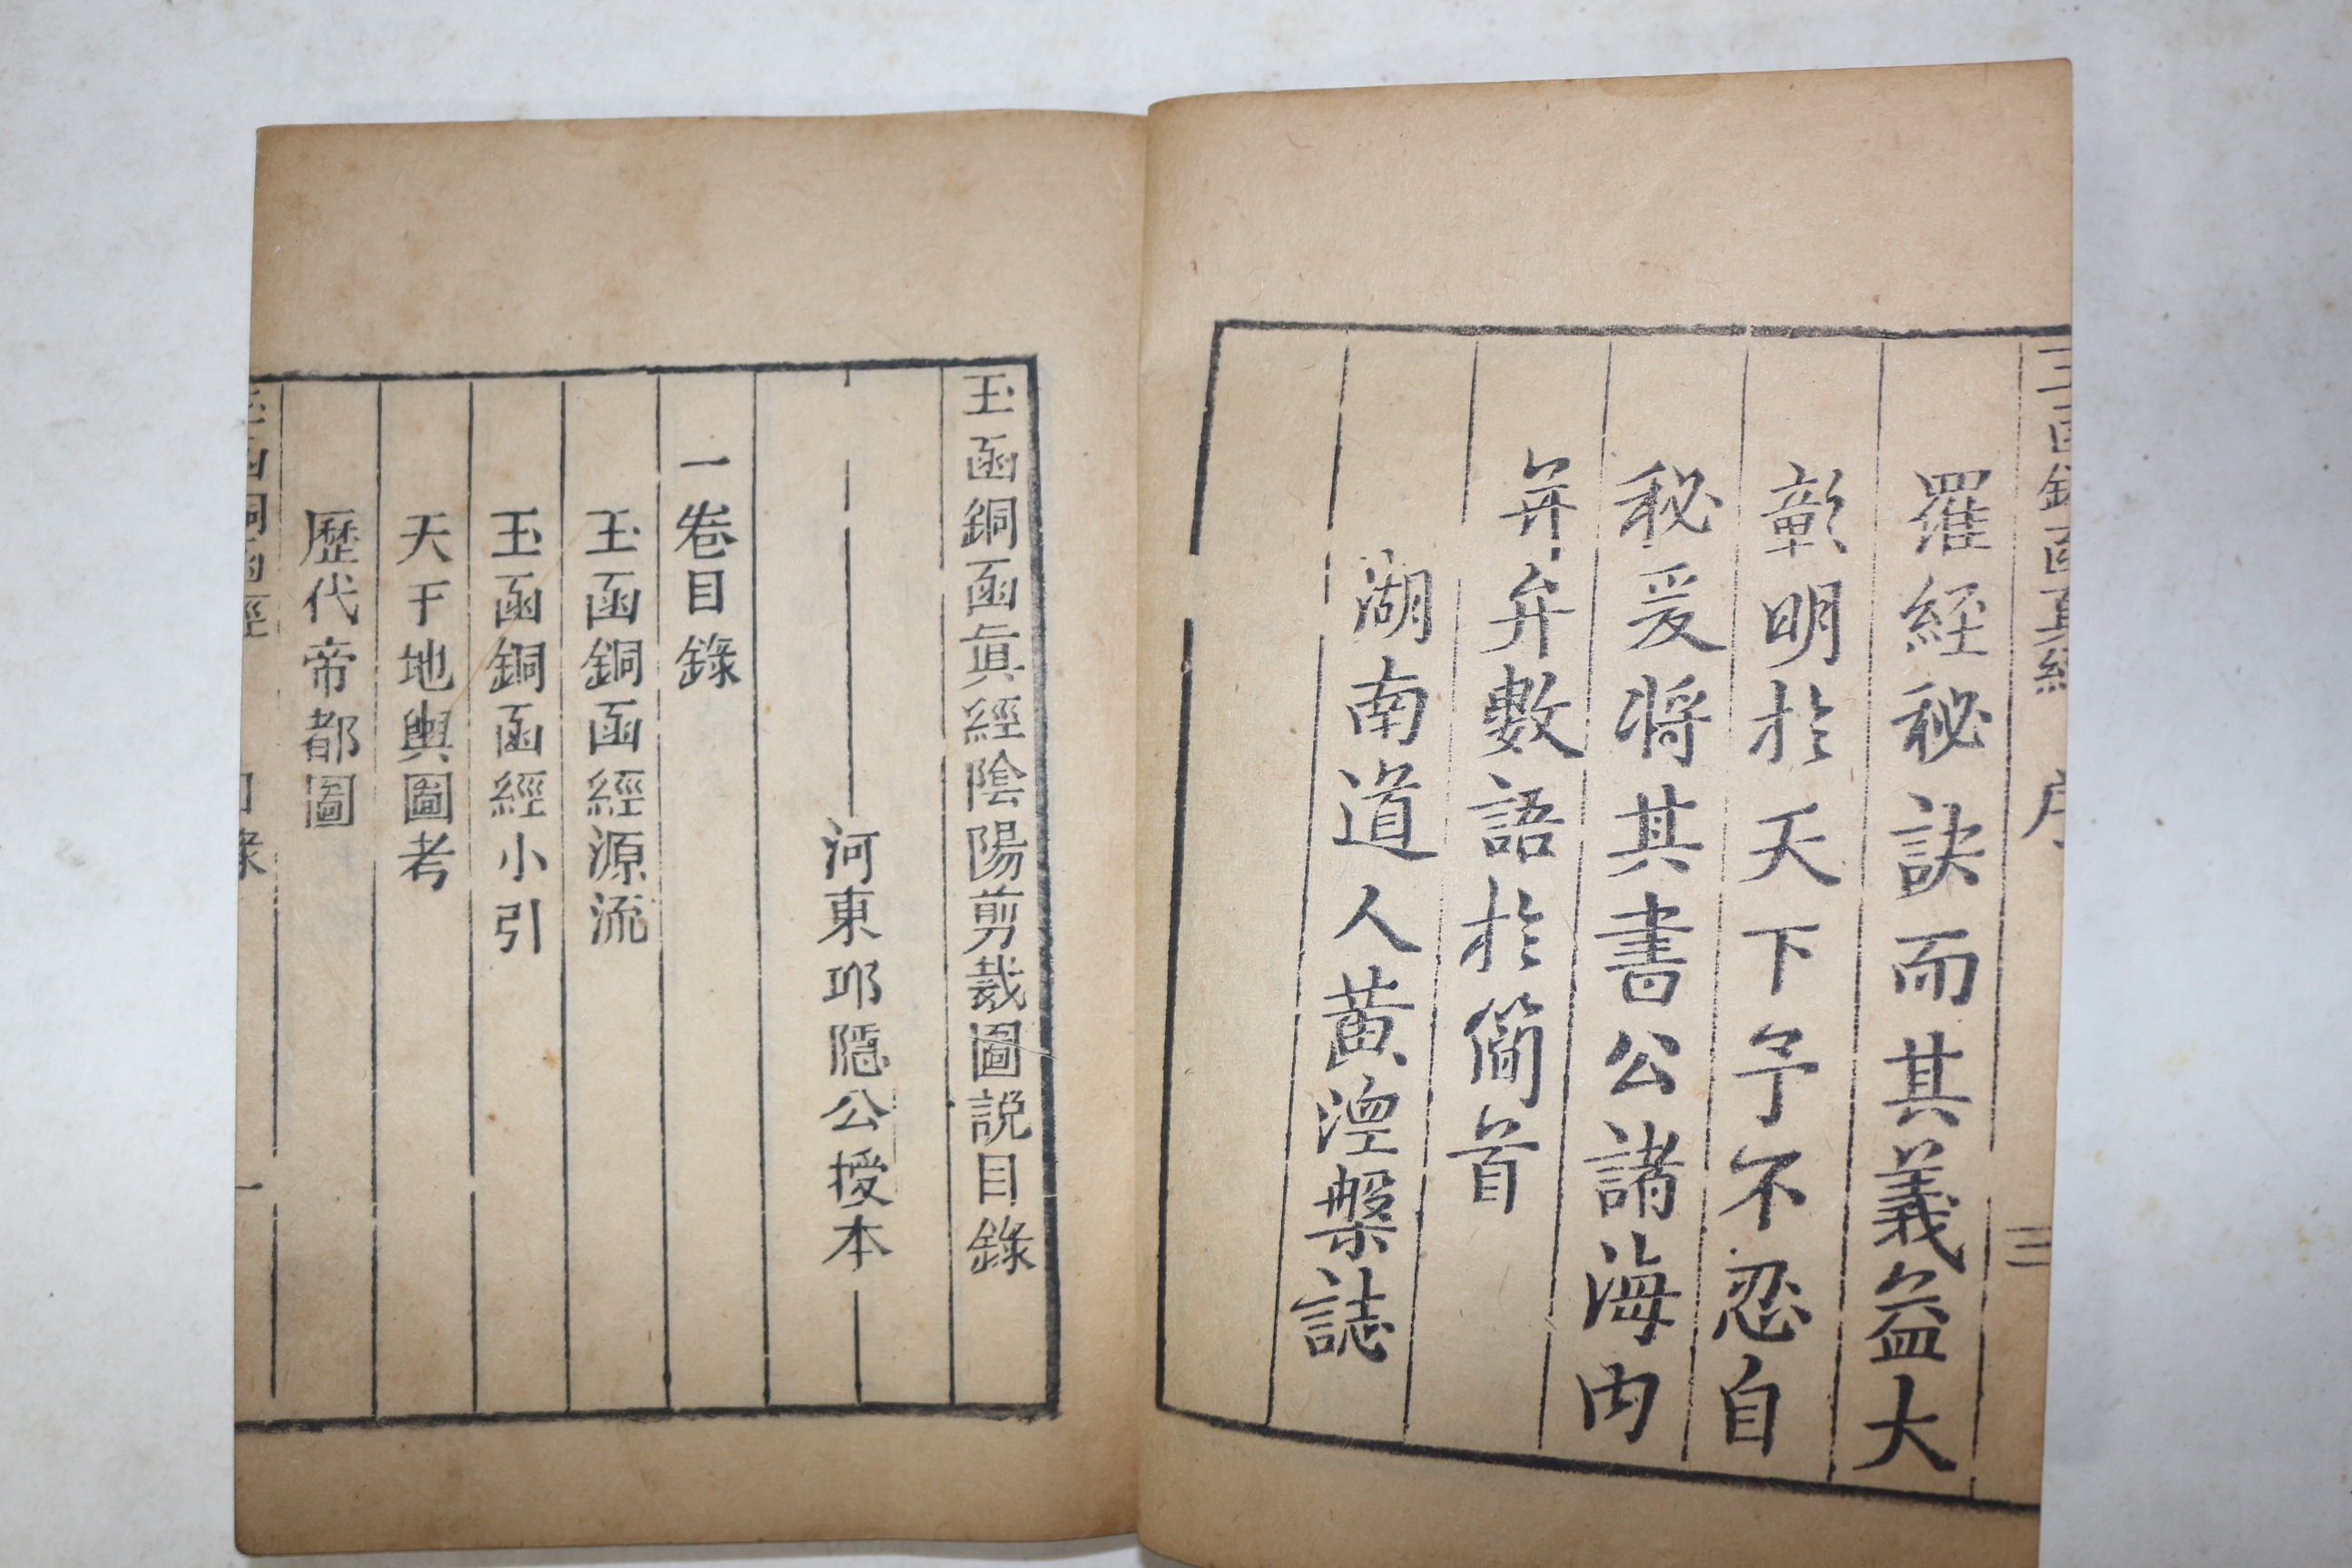 玉函銅函真經 序 三
羅經秘訣而其義益大
彰明於天下予不忍自
秘爰將其書公諸海内
并弁數語於簡首
湖南道人黃澄槃誌
玉函銅函眞經陰陽剪裁圖說目錄
河東邱隱公授本
一卷目錄
玉函銅函經源流
玉函銅函經小引
天于地輿圖考
歷代帝都圖
玉函銅函經 目錄 一